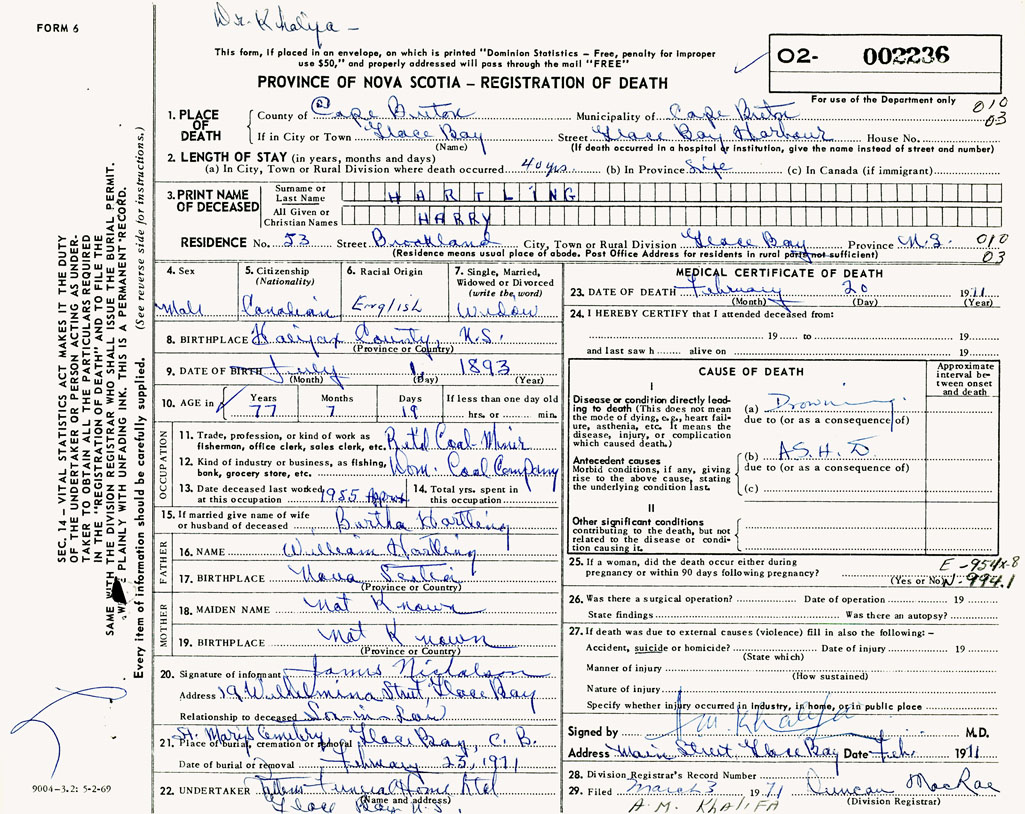 FORM 6
Dr. Khalifa -
This form, if placed in an envelope, on which is printed "Dominion Statistics – Free, penalty for improper
use $50," and properly addressed will pass through the mail "FREE"
O2- 002236
PROVINCE OF NOVA SCOTIA – REGISTRATION OF DEATH
For use of the Department only
010
03
1. PLACE OF DEATH
County of Cape Breton Municipality of Cape Breton
If in City or Town Glace Bay Street Glace Bay Harbour House No.
(Name) (If death occurred in a hospital or institution, give the name instead of street and number)
2. LENGTH OF STAY (in years, months and days)
(a) In City, Town or Rural Division where death occurred 40 yrs. (b) In Province Life (c) In Canada (if immigrant)
3. PRINT NAME OF DECEASED
Surname or Last Name HARTLING
All Given or Christian Names HARRY
RESIDENCE No. 53 Street Brookland City, Town or Rural Division Glace Bay Province N.S. 010
03
(Residence means usual place of abode. Post Office Address for residents in rural parts not sufficient)
4. Sex
Male
5. Citizenship
(Nationality)
Canadian
6. Racial Origin
English
7. Single, Married,
Widowed or Divorced
(write the word)
Widow
8. BIRTHPLACE Halifax County, N.S.
(Province or Country)
9. DATE OF BIRTH July 1, 1893
(Month) (Day) (Year)
10. AGE in Years Months Days If less than one day old
77 7 19 hrs. or min.
OCCUPATION
11. Trade, profession, or kind of work as
fisherman, office clerk, sales clerk, etc. Ret'd Coal-Miner
12. Kind of industry or business, as fishing,
bank, grocery store, etc. Dom. Coal Company
13. Date deceased last worked
at this occupation 1955 Approx
14. Total yrs. spent in
this occupation
15. If married give name of wife
or husband of deceased Bertha Hartling
FATHER
16. NAME William Hartling
17. BIRTHPLACE Nova Scotia
(Province or Country)
MOTHER
18. MAIDEN NAME Not Known
19. BIRTHPLACE Not Known
(Province or Country)
20. Signature of informant James Nicholson
Address 19 Wilhelmina Street, Glace Bay
Relationship to deceased Son-in-Law
21. Place of burial, cremation or removal St. Mary's Cemetery Glace Bay, C.B.
Date of burial or removal February 23, 1971
22. UNDERTAKER Funeral Home Ltd
(Name and address)
Glace Bay N.S.
MEDICAL CERTIFICATE OF DEATH
23. DATE OF DEATH February 20 1971
(Month) (Day) (Year)
24. I HEREBY CERTIFY that I attended deceased from:
19 to 19
and last saw h alive on 19
CAUSE OF DEATH
Approximate
interval be-
tween onset
and death
I
Disease or condition directly lead-
ing to death (This does not mean
the mode of dying, e.g., heart fail-
ure, asthenia, etc. It means the
disease, injury, or complication
which caused death.)
(a) Drowning.
due to (or as a consequence of)
Antecedent causes
Morbid conditions, if any, giving
rise to the above cause, stating
the underlying condition last.
(b) A.S.H.D.
due to (or as a consequence of)
(c)
II
Other significant conditions
contributing to the death, but not
related to the disease or condi-
tion causing it.
25. If a woman, did the death occur either during
pregnancy or within 90 days following pregnancy?
(Yes or No)
N-994.1
26. Was there a surgical operation? Date of operation 19
State findings Was there an autopsy?
27. If death was due to external causes (violence) fill in also the following: –
Accident, suicide or homicide? Date of injury 19
(State which)
Manner of injury
(How sustained)
Nature of injury
Specify whether injury occurred in industry, in home, or in public place
Signed by A M Khalifa M.D.
Address Main Street Glace Bay Date Feb. 1971
28. Division Registrar's Record Number
29. Filed March 3 1971 Duncan MacRae
(Division Registrar)
A.M. KHALIFA
SEC. 14 – VITAL STATISTICS ACT MAKES IT THE DUTY
OF THE UNDERTAKER OR PERSON ACTING AS UNDER-
TAKER TO OBTAIN ALL THE PARTICULARS REQUIRED
IN THE "REGISTRATION OF DEATH" AND TO FILE THE
SAME WITH THE DIVISION REGISTRAR WHO SHALL ISSUE THE BURIAL PERMIT.
WRITE PLAINLY WITH UNFADING INK. THIS IS A PERMANENT RECORD.
Every item of information should be carefully supplied. (See reverse side for instructions.)
9004-3.2: 5-2-69